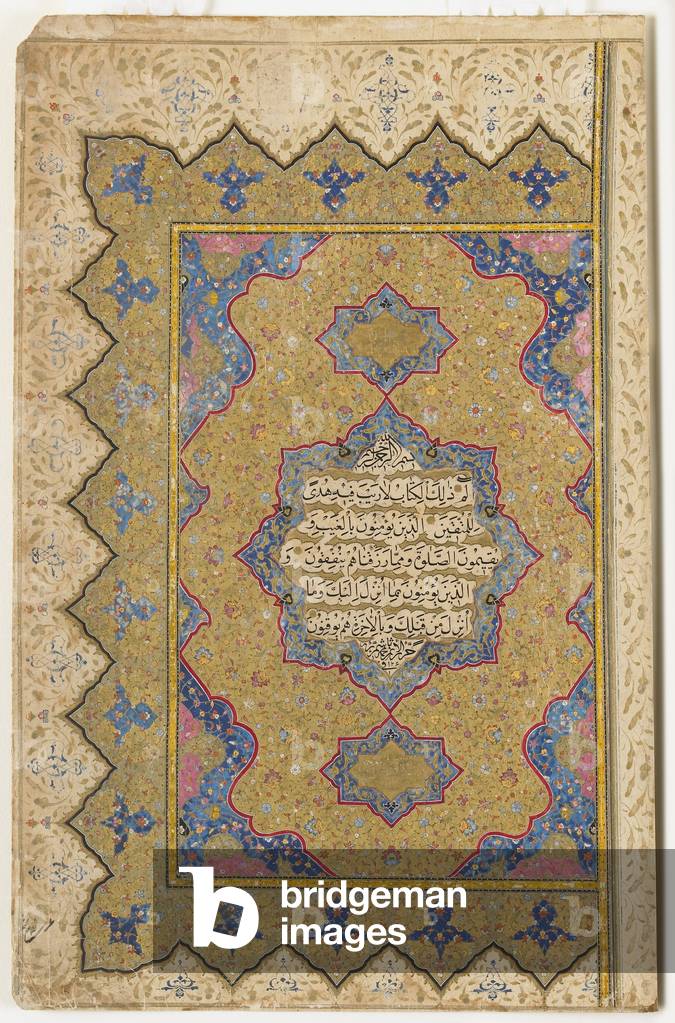 بسم الله الرحمن الرحيم
الم ذلك الكتاب لا ريب فيه هدى
للمتقين الذين يؤمنون بالغيب و
يقيمون الصلوة ومما رزقناهم ينفقون و
الذين يؤمنون بما انزل اليك وما
انزل من قبلك وبالاخرة هم يوقنون
bridgeman
images